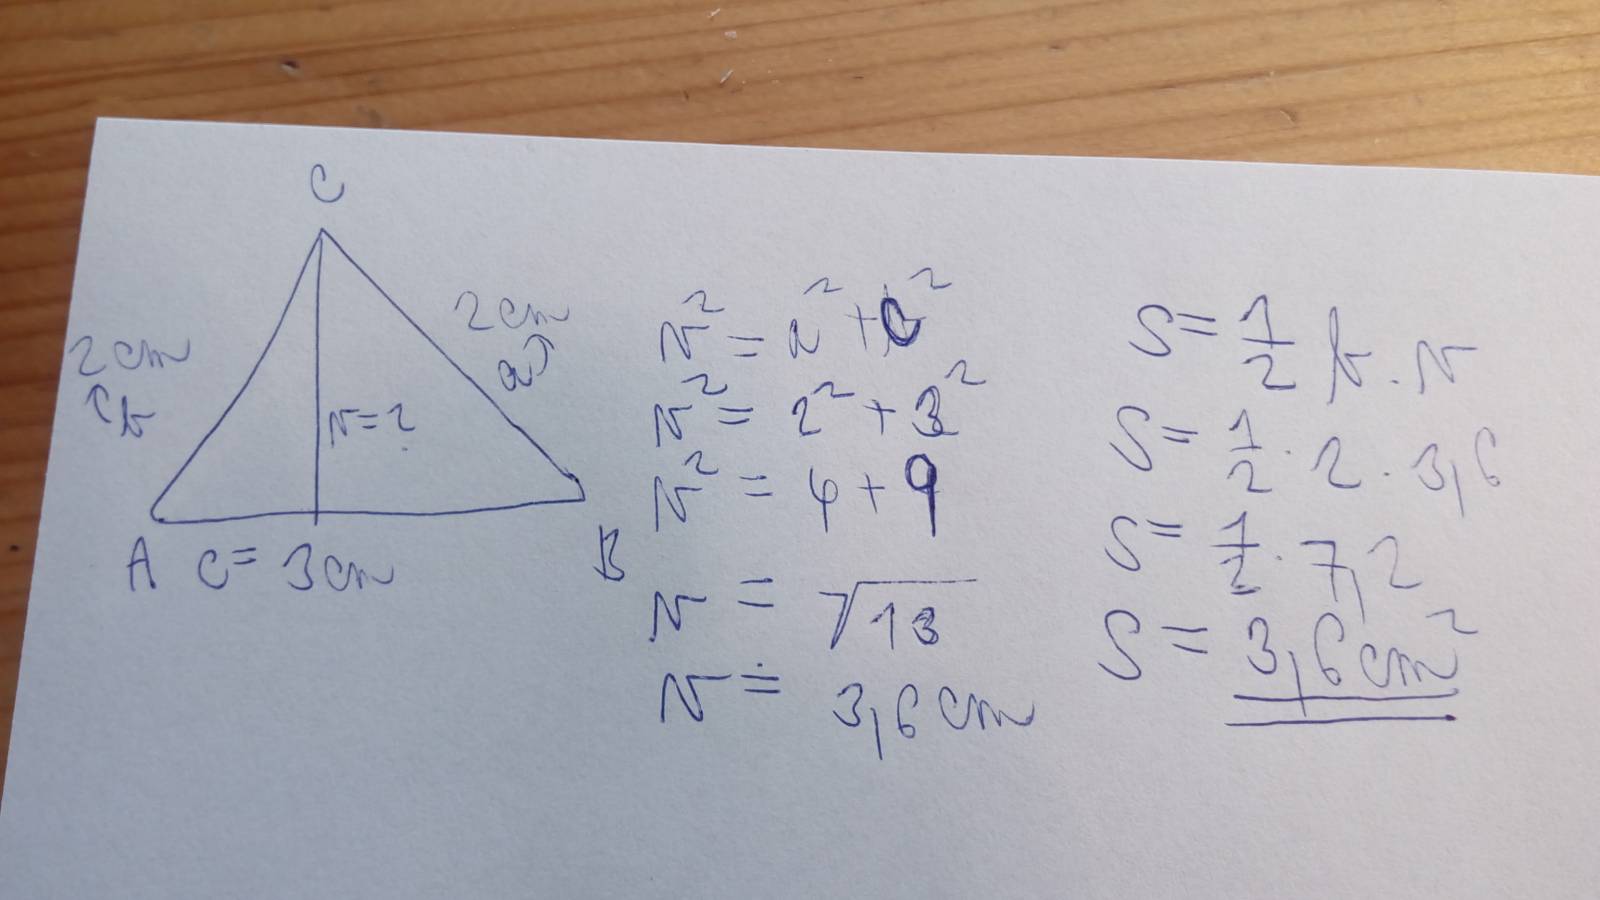 C
2 cm
b
2 cm
a
v = ?
A c = 3 cm
B
v² = a² + c²
v² = 2² + 3²
v² = 4 + 9
v = √13
v ≐ 3,6 cm
S = 1/2 b . v
S = 1/2 . 2 . 3,6
S = 1/2 . 7,2
S = 3,6 cm²